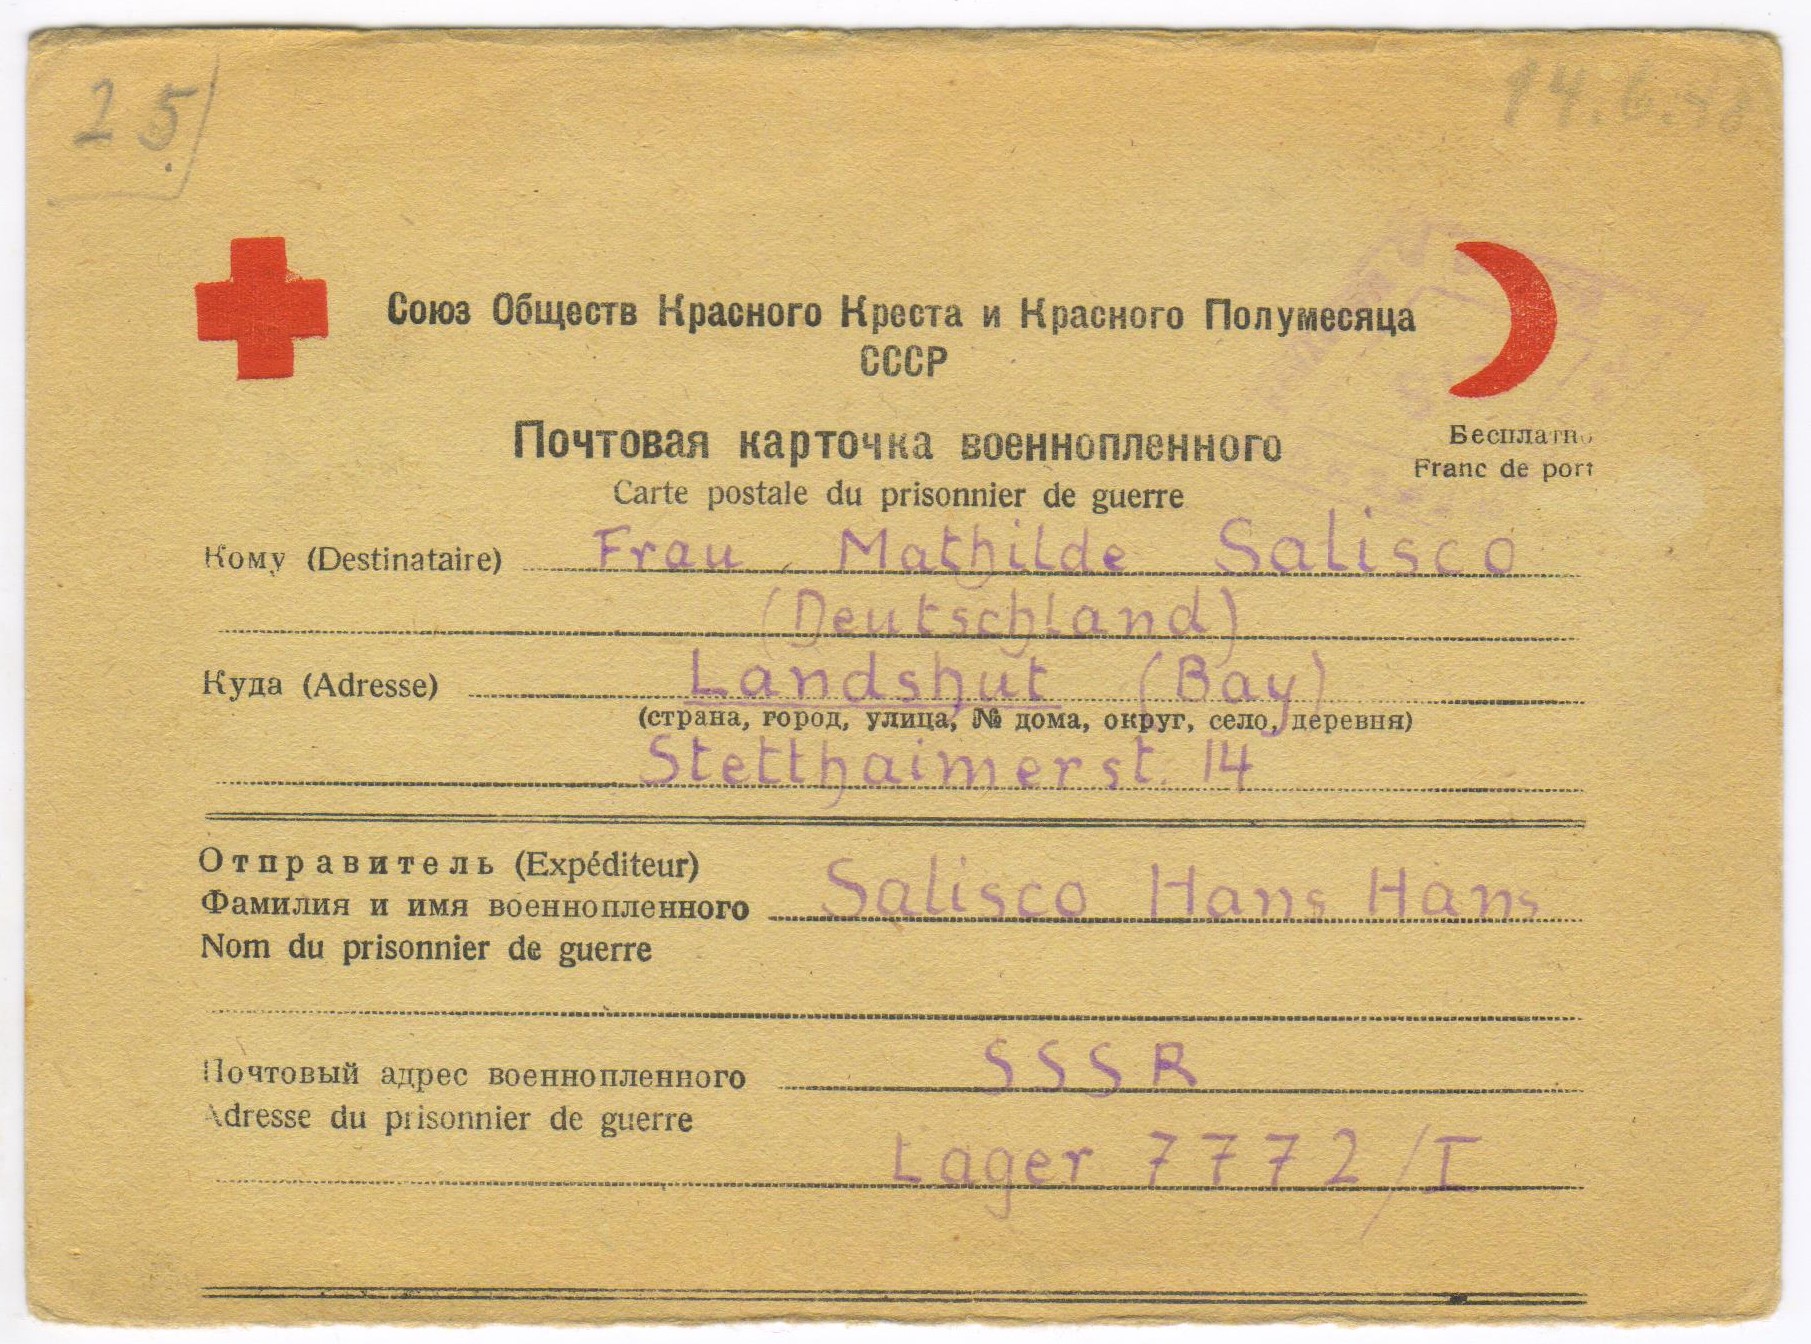 25.
14.6.48
Союз Обществ Красного Креста и Красного Полумесяца
СССР
Почтовая карточка военнопленного
Бесплатно
Carte postale du prisonnier de guerre
Franc de port
Кому (Destinataire) Frau Mathilde Salisco
(Deutschland)
Куда (Adresse) Landshut (Bay)
(страна, город, улица, № дома, округ, село, деревня)
Stetthaimerst. 14
Отправитель (Expéditeur)
Фамилия и имя военнопленного Salisco Hans Hans
Nom du prisonnier de guerre
Почтовый адрес военнопленного SSSR
Adresse du prisonnier de guerre
Lager 7772/I